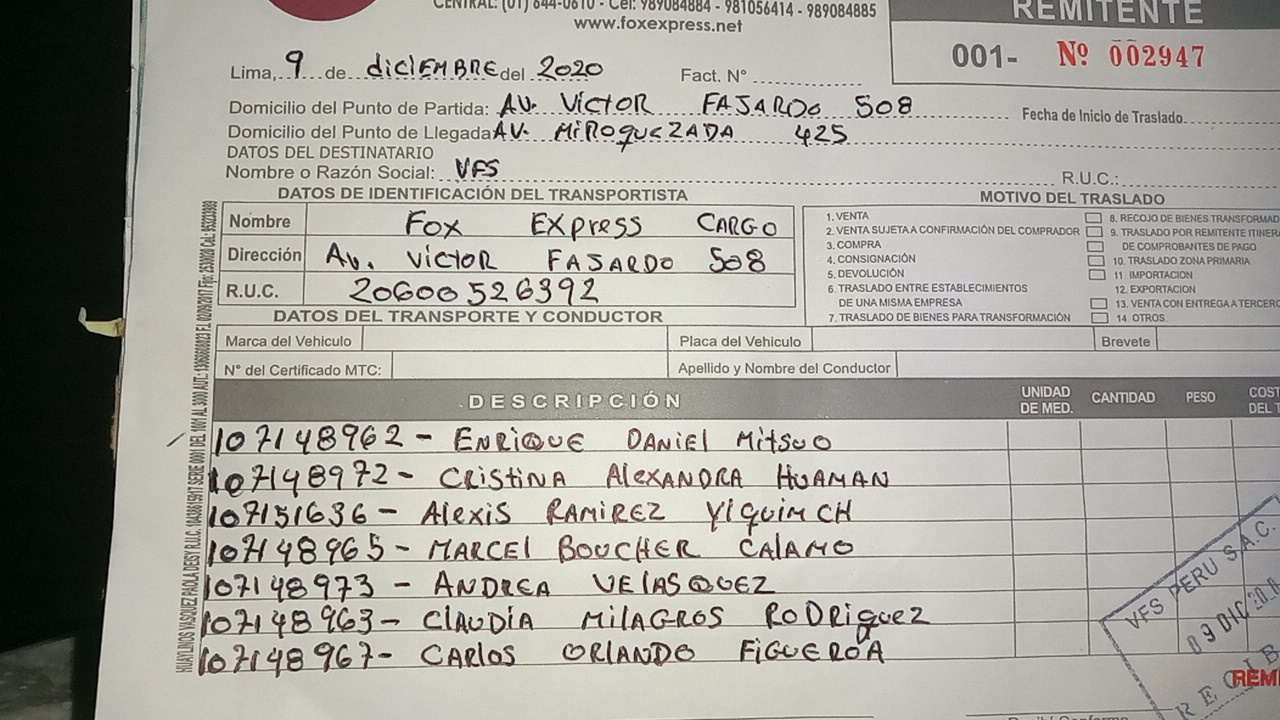 CENTRAL: (01) 644-0610 - Cel: 989084884 - 981056414 - 989084885
www.foxexpress.net
REMITENTE
001- Nº 002947
Lima, 9 de diCIEMBRE del 2020 Fact. N°
Domicilio del Punto de Partida: AV. VICTOR FAJARDO 508
Fecha de Inicio de Traslado
Domicilio del Punto de Llegada AV. MIROQUEZADA 425
DATOS DEL DESTINATARIO
Nombre o Razón Social: VFS R.U.C.:
DATOS DE IDENTIFICACIÓN DEL TRANSPORTISTA
Nombre FOX EXPRESS CARGO
Dirección AV. VICTOR FAJARDO 508
R.U.C. 20600526392
MOTIVO DEL TRASLADO
1. VENTA
2. VENTA SUJETA A CONFIRMACIÓN DEL COMPRADOR
3. COMPRA
4. CONSIGNACIÓN
5. DEVOLUCIÓN
6. TRASLADO ENTRE ESTABLECIMIENTOS
DE UNA MISMA EMPRESA
7. TRASLADO DE BIENES PARA TRANSFORMACIÓN
8. RECOJO DE BIENES TRANSFORMAD
9. TRASLADO POR REMITENTE ITINERA
DE COMPROBANTES DE PAGO
10. TRASLADO ZONA PRIMARIA
11 IMPORTACION
12. EXPORTACION
13. VENTA CON ENTREGA A TERCERO
14. OTROS
DATOS DEL TRANSPORTE Y CONDUCTOR
Marca del Vehiculo Placa del Vehiculo Brevete
N° del Certificado MTC: Apellido y Nombre del Conductor
DESCRIPCIÓN UNIDAD DE MED. CANTIDAD PESO COST DEL T
107148962 - ENRIQUE DANIEL MITSUO
107148972 - CRISTINA ALEXANDRA HUAMAN
107151636 - ALEXIS RAMIREZ YIQUIMCH
107148965 - MARCEL BOUCHER CALAMO
107148973 - ANDREA VELASQUEZ
107148963 - CLAUDIA MILAGROS RODRIGUEZ
107148967 - CARLOS ORLANDO FIGUEROA
VFS PERU S.A.C.
09 DIC
RECIB
REM